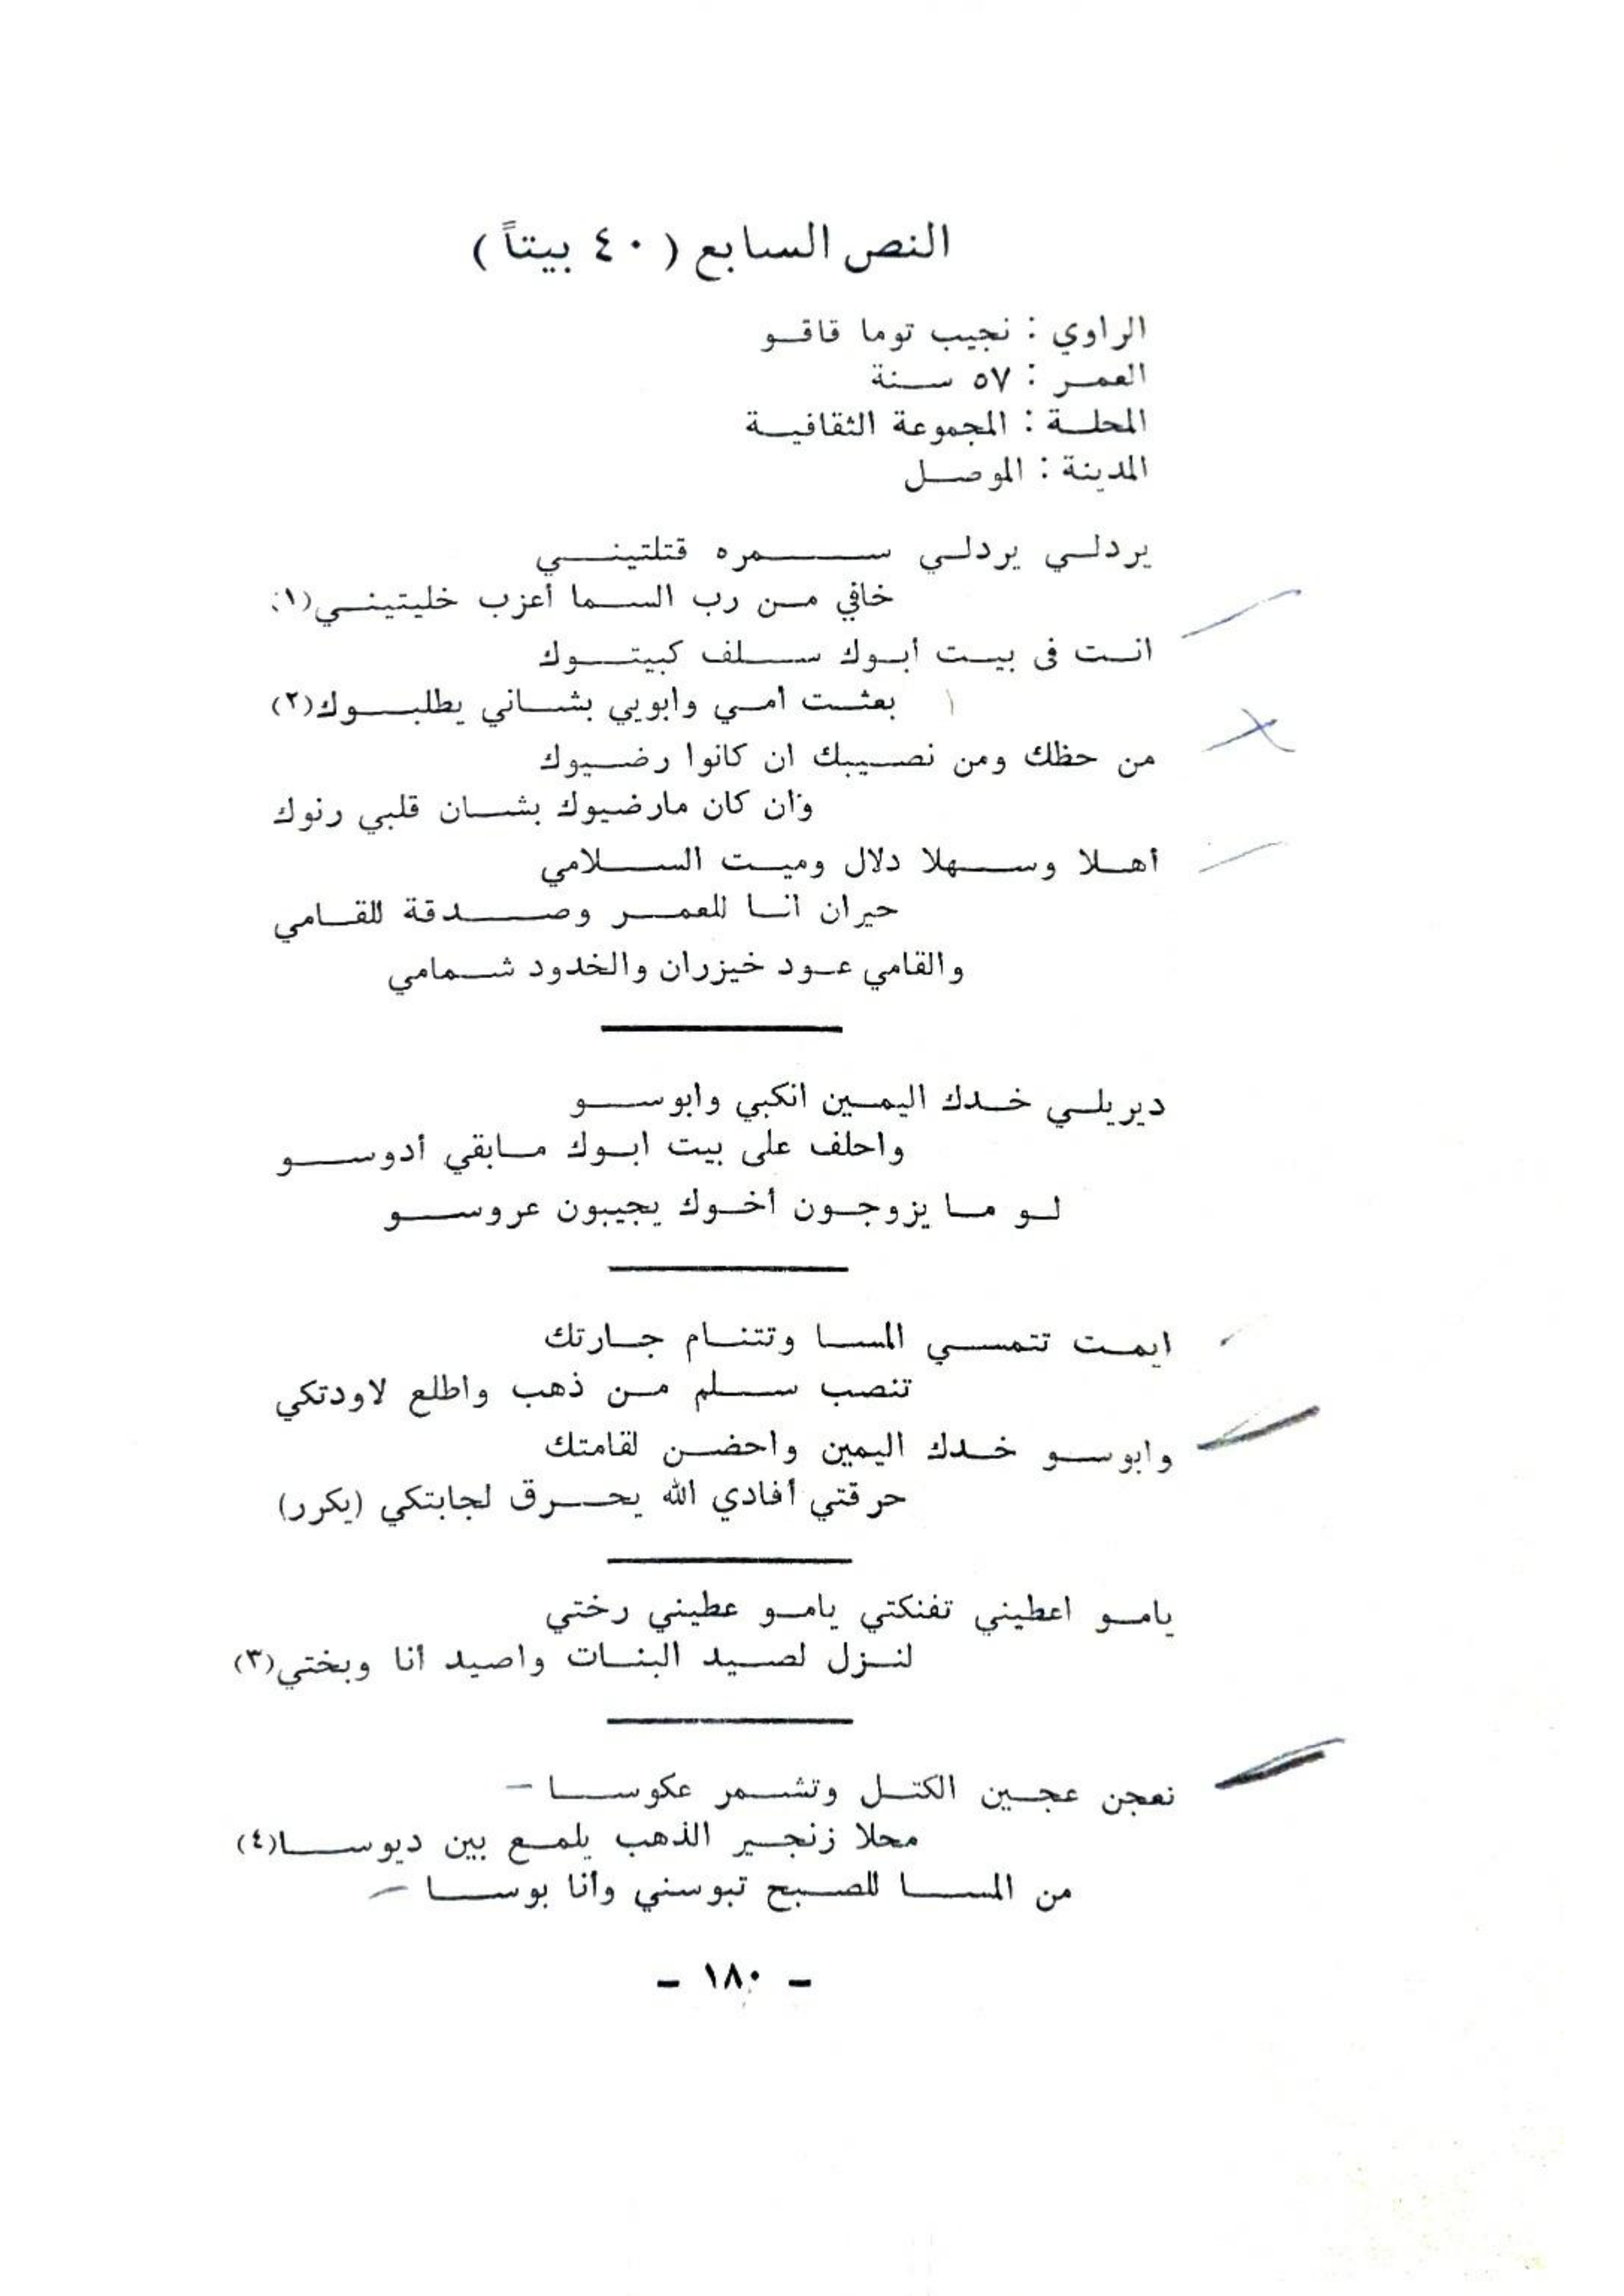 النص السابع ( ٤٠ بيتاً )
الراوي : نجيب توما قاقو
العمر : ٥٧ سنة
المحلة : المجموعة الثقافية
المدينة : الموصل
يردلي يردلي سمره قتلتيني
خافي من رب السما أعزب خليتيني(١)
انت فى بيت أبوك سلف كبيتوك
بعثت امي وابويي بشاني يطلبوك(٢)
من حظك ومن نصيبك ان كانوا رضيوك
وان كان مارضيوك بشان قلبي رنوك
أهلا وسهلا دلال وميت السلامي
حيران أنا للعمر وصدقة للقامي
والقامي عود خيزران والخدود شمامي
ديريلي خدك اليمين انكبي وابوسو
واحلف على بيت ابوك مابقي أدوسو
لو ما يزوجون أخوك يجيبون عروسو
ايمت تتمسي المسا وتتنام جارتك
تنصب سلم من ذهب واطلع لاودتكي
وابوسو خدك اليمين واحضن لقامتك
حرقتي أفادي الله يحرق لجابتكي (يكرر)
يامو اعطيني تفنكتي يامو عطيني رختي
لنزل لصيد البنات واصيد أنا وبختي(٣)
نعجن عجين الكتل وتشمر عكوسا
محلا زنجير الذهب يلمع بين ديوسا(٤)
من المسا للصبح تبوسني وأنا بوسا
- ١٨٠ -